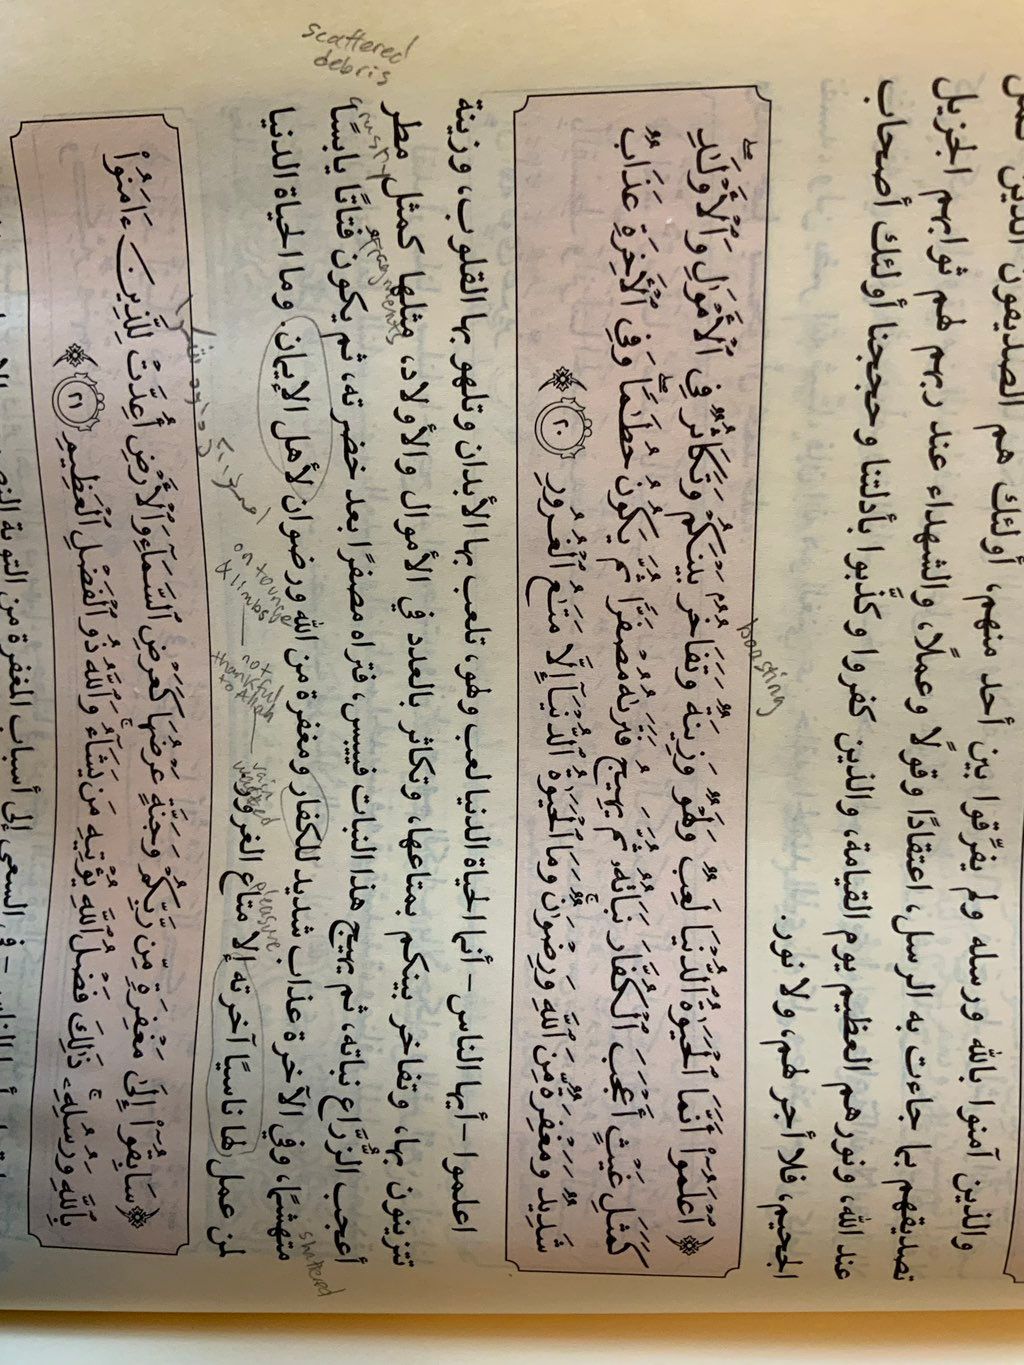 الصديقون الذين
والذين آمنوا بالله ورسله ولم يفرِّقوا بين أحد منهم، أولئك هم
تصديقهم بما جاءت به الرسل، اعتقادًا وقولًا وعملًا، والشهداء عند ربهم لهم ثوابهم الجزيل
عند الله، ونورهم العظيم يوم القيامة، والذين كفروا وكذَّبوا بأدلتنا وحججنا أولئك أصحاب
الجحيم، فلا أجر لهم، ولا نور.
boasting
﴿ٱعۡلَمُوٓاْ أَنَّمَا ٱلۡحَيَوٰةُ ٱلدُّنۡيَا لَعِبٞ وَلَهۡوٞ وَزِينَةٞ وَتَفَاخُرُۢ بَيۡنَكُمۡ وَتَكَاثُرٞ فِي ٱلۡأَمۡوَٰلِ وَٱلۡأَوۡلَٰدِۖ
كَمَثَلِ غَيۡثٍ أَعۡجَبَ ٱلۡكُفَّارَ نَبَاتُهُۥ ثُمَّ يَهِيجُ فَتَرَىٰهُ مُصۡفَرّٗا ثُمَّ يَكُونُ حُطَٰمٗاۖ وَفِي ٱلۡأٓخِرَةِ عَذَابٞ
شَدِيدٞ وَمَغۡفِرَةٞ مِّنَ ٱللَّهِ وَرِضۡوَٰنٞۚ وَمَا ٱلۡحَيَوٰةُ ٱلدُّنۡيَآ إِلَّا مَتَٰعُ ٱلۡغُرُورِ ٢٠﴾
اعلموا -أيها الناس- أنما الحياة الدنيا لعب ولهو، تلعب بها الأبدان وتلهو بها القلوب، وزينة
تتزينون بها، وتفاخر بينكم بمتاعها، وتكاثر بالعدد في الأموال والأولاد، مثلها كمثل مطر
scattered
debris
fragments
أعجب الزُّرَّاع نباته، ثم يهيج هذا النبات فييبس، فتراه مصفرًا بعد خضرته، ثم يكون فتاتًا يابسًا
shattered
متهشمًا، وفي الآخرة عذاب شديد للكفار ومغفرة من الله ورضوان لأهل الإيمان. وما الحياة الدنيا
لمن عمل لها ناسيًا آخرته إلا متاع الغرور.
on tounge
& limbs
not
thankful
to Allah
﴿سَابِقُوٓاْ إِلَىٰ مَغۡفِرَةٖ مِّن رَّبِّكُمۡ وَجَنَّةٍ عَرۡضُهَا كَعَرۡضِ ٱلسَّمَآءِ وَٱلۡأَرۡضِ أُعِدَّتۡ لِلَّذِينَ ءَامَنُواْ
بِٱللَّهِ وَرُسُلِهِۦۚ ذَٰلِكَ فَضۡلُ ٱللَّهِ يُؤۡتِيهِ مَن يَشَآءُۚ وَٱللَّهُ ذُو ٱلۡفَضۡلِ ٱلۡعَظِيمِ ٢١﴾
الناس - في السعي إلى أسباب المغفرة من التوبة